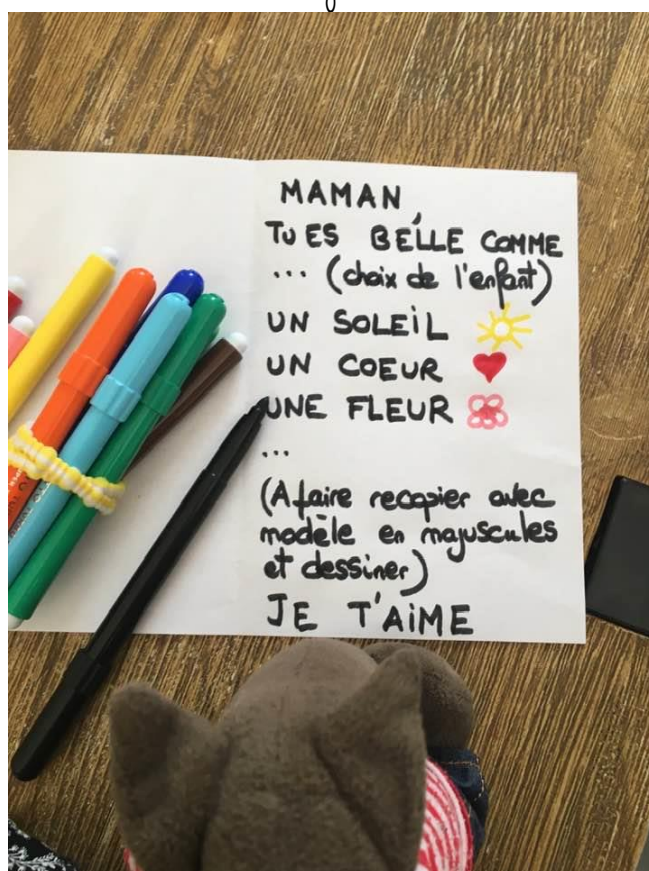 MAMAN,
TU ES BELLE COMME
... (choix de l'enfant)
UN SOLEIL
UN COEUR
UNE FLEUR
...
(A faire recopier avec
modèle en majuscules
et dessiner)
JE T'AiME